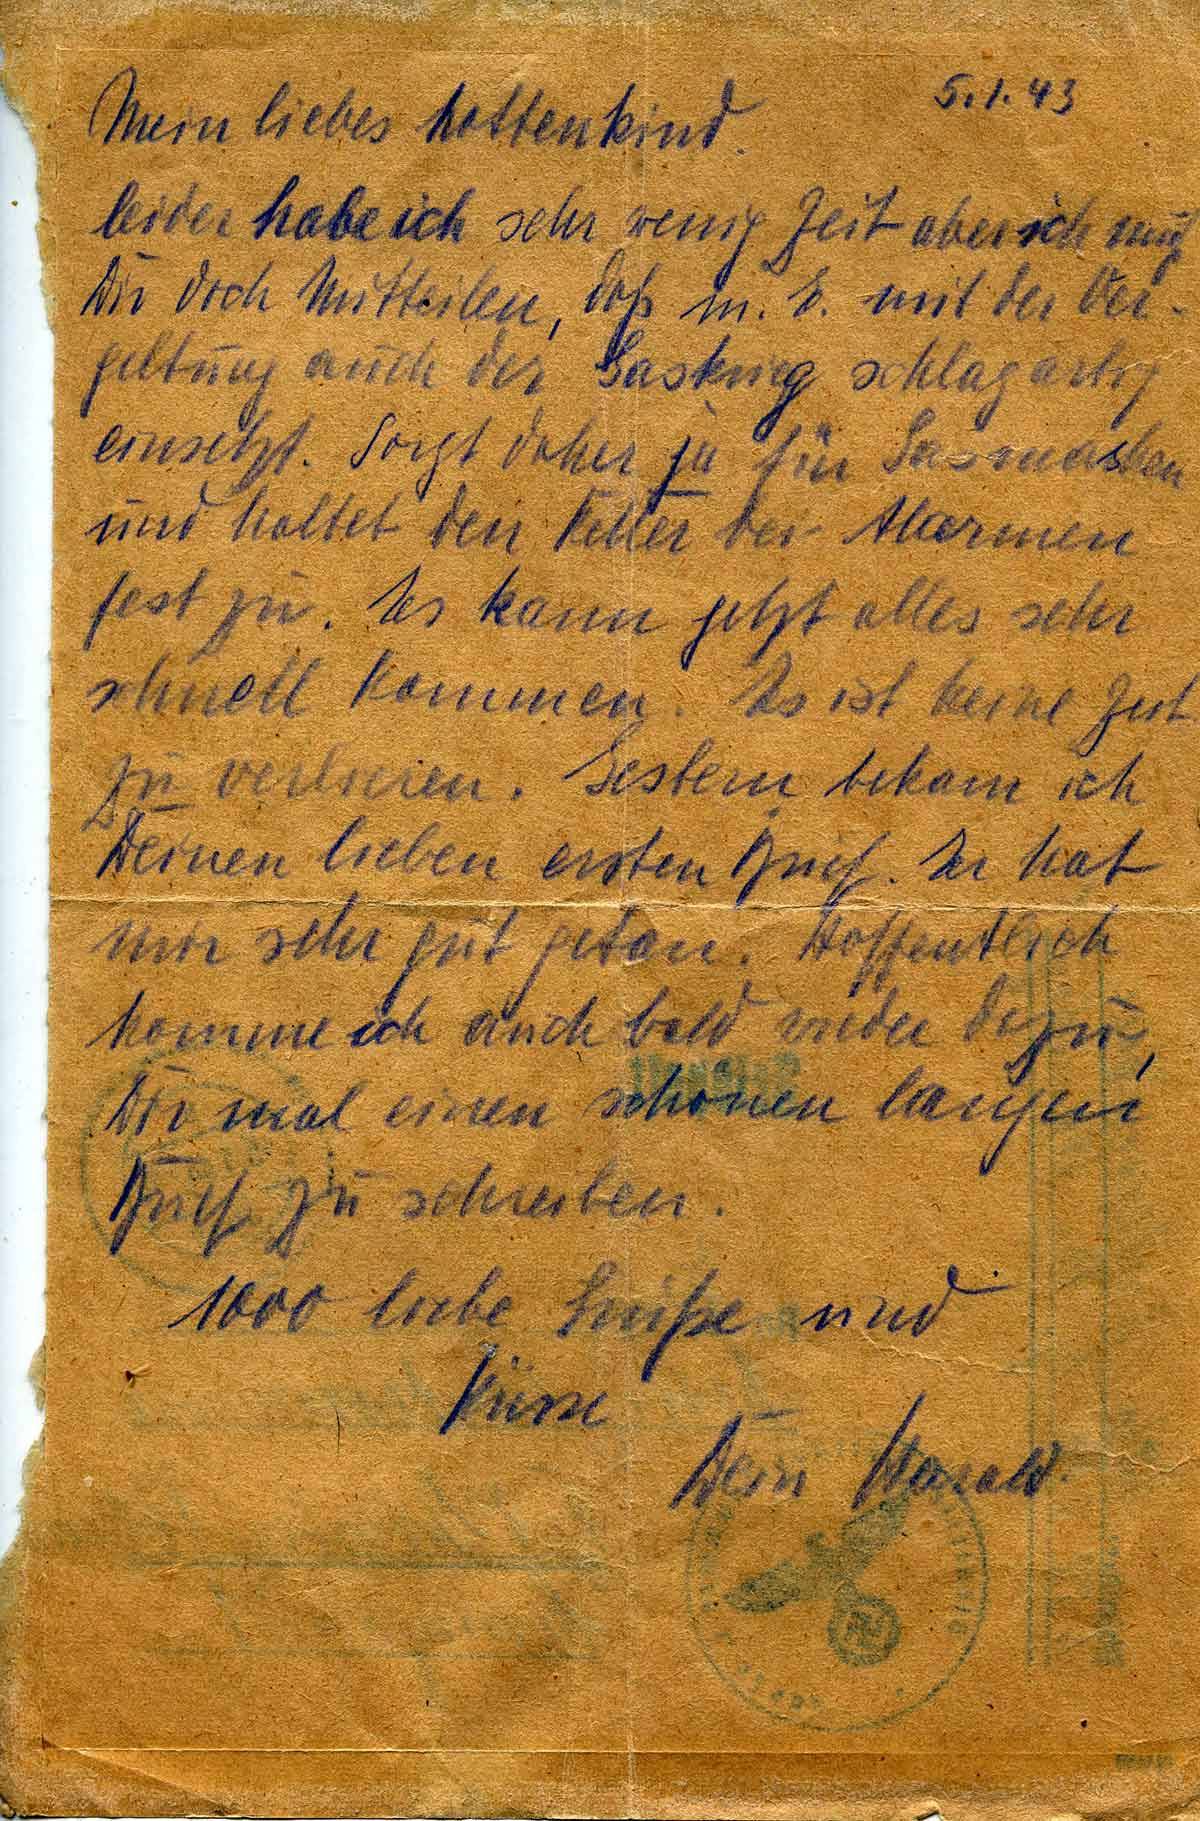 5.1.43
Mein liebes Mottenkind.
leider habe ich sehr wenig Zeit aber ich muß
Dir doch Mitteilen, daß m. E. mit der Ver-
geltung auch der Gaskrieg schlagartig
einsetzt. Sorgt daher ja für Gasmasken
und haltet den Keller bei Alarmen
fest zu. Es kann jetzt alles sehr
schnell kommen. Es ist keine Zeit
zu verlieren. Gestern bekam ich
Deinen lieben ersten Brief. Er hat
mir sehr gut getan. Hoffentlich
komme ich auch bald wieder dazu,
Dir mal einen schönen langen
Brief zu schreiben.
1000 liebe Grüße und
Küsse
Dein Harald.